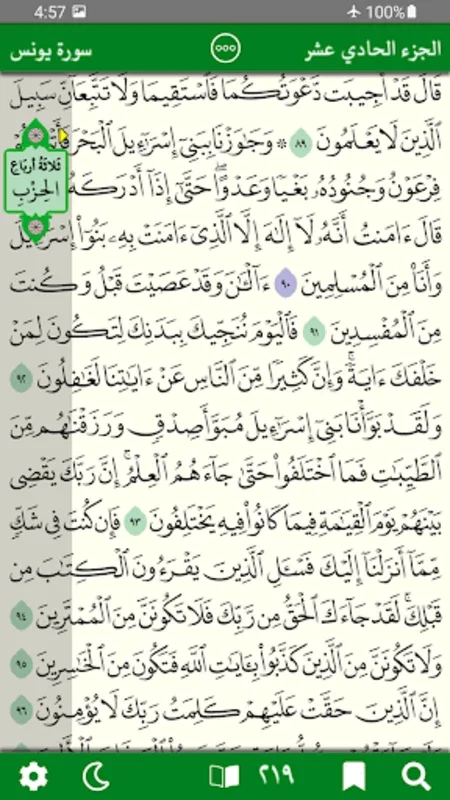 4:57 100%
الجزء الحادي عشر سورة يونس
قَالَ قَدْ أُجِيبَت دَّعْوَتُكُمَا فَٱسْتَقِيمَا وَلَا تَتَّبِعَآنِّ سَبِيلَ
ٱلَّذِينَ لَا يَعْلَمُونَ ٨٩ ۞ وَجَٰوَزْنَا بِبَنِىٓ إِسْرَٰٓءِيلَ ٱلْبَحْرَ
ثلاثة أرباع
الحزب
فِرْعَوْنُ وَجُنُودُهُۥ بَغْيًا وَعَدْوًا ۖ حَتَّىٰٓ إِذَآ أَدْرَكَهُ
قَالَ ءَامَنتُ أَنَّهُۥ لَآ إِلَٰهَ إِلَّا ٱلَّذِىٓ ءَامَنَتْ بِهِۦ بَنُوٓا۟ إِسْرَٰٓءِيلَ
وَأَنَا۠ مِنَ ٱلْمُسْلِمِينَ ٩٠ ءَآلْـَٰٔنَ وَقَدْ عَصَيْتَ قَبْلُ وَكُنتَ
مِنَ ٱلْمُفْسِدِينَ ٩١ فَٱلْيَوْمَ نُنَجِّيكَ بِبَدَنِكَ لِتَكُونَ لِمَنْ
خَلْفَكَ ءَايَةً ۚ وَإِنَّ كَثِيرًا مِّنَ ٱلنَّاسِ عَنْ ءَايَٰتِنَا لَغَٰفِلُونَ ٩٢
وَلَقَدْ بَوَّأْنَا بَنِىٓ إِسْرَٰٓءِيلَ مُبَوَّأَ صِدْقٍ وَرَزَقْنَٰهُم مِّنَ
ٱلطَّيِّبَٰتِ فَمَا ٱخْتَلَفُوا۟ حَتَّىٰ جَآءَهُمُ ٱلْعِلْمُ ۚ إِنَّ رَبَّكَ يَقْضِى
بَيْنَهُمْ يَوْمَ ٱلْقِيَٰمَةِ فِيمَا كَانُوا۟ فِيهِ يَخْتَلِفُونَ ٩٣ فَإِن كُنتَ فِى شَكٍّ
مِّمَّآ أَنزَلْنَآ إِلَيْكَ فَسْـَٔلِ ٱلَّذِينَ يَقْرَءُونَ ٱلْكِتَٰبَ مِن
قَبْلِكَ ۚ لَقَدْ جَآءَكَ ٱلْحَقُّ مِن رَّبِّكَ فَلَا تَكُونَنَّ مِنَ ٱلْمُمْتَرِينَ ٩٤
وَلَا تَكُونَنَّ مِنَ ٱلَّذِينَ كَذَّبُوا۟ بِـَٔايَٰتِ ٱللَّهِ فَتَكُونَ مِنَ ٱلْخَٰسِرِينَ ٩٥
إِنَّ ٱلَّذِينَ حَقَّتْ عَلَيْهِمْ كَلِمَتُ رَبِّكَ لَا يُؤْمِنُونَ ٩٦
٢١٩